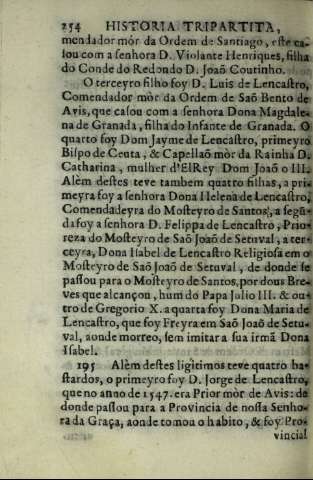 254 HISTORIA TRIPARTITA,
mendador mòr da Ordem de Santiago, este ca-
sou com a senhora D. Violante Henriques, filha
do Conde do Redondo D. Joaõ Coutinho.
O terceyro filho foy D. Luis de Lencastro,
Comendador mòr da Ordem de Saõ Bento de
Avis, que casou com a senhora Dona Magdale-
na de Granada, filha do Infante de Granada. O
quarto foy Dom Jayme de Lencastro, primeyro
Bispo de Ceuta, & Capellaõ mòr da Rainha D.
Catharina, mulher d'ElRey Dom Joaõ o III.
Alèm destes teve tambem quatro filhas, a pri-
meyra foy a senhora Dona Helena de Lencastro,
Comendadeyra do Mosteyro de Santos, a segũ-
da foy a senhora D. Felippa de Lencastro, Prio-
reza do Mosteyro de Saõ Joaõ de Setuval, a ter-
ceyra, Dona Isabel de Lencastro Religiosa em o
Mosteyro de Saõ Joaõ de Setuval, de donde se
passou para o Mosteyro de Santos, por dous Bre-
ves que alcançou, hum do Papa Julio III. & ou-
tro de Gregorio X. a quarta foy Dona Maria de
Lencastro, que foy Freyra em Saõ Joaõ de Setu-
val, aonde morreo, sem imitar a sua irmã Dona
Isabel.
195 Alèm destes ligitimos teve quatro ba-
stardos, o primeyro foy D. Jorge de Lencastro,
que no anno de 1547. era Prior mòr de Avis: de
donde passou para a Provincia de nossa Senho-
ra da Graça, aonde tomou o habito, & foy Pro-
vincial